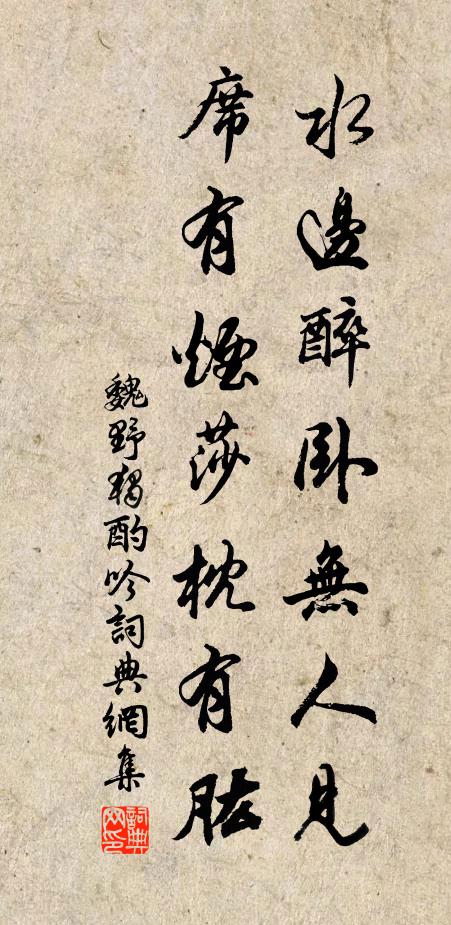 水邊醉卧無人見
席有煙莎枕有肱
魏野獨酌吟詞典網集
詞典網印